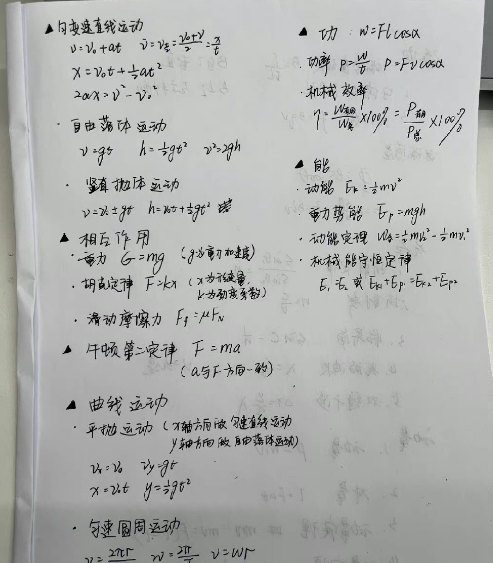 ▲匀变速直线运动
v=v₀+at  v̄=v_{t/2}=(v₀+v)/2=x/t
x=v₀t+½at²
2ax=v²-v₀²
·自由落体运动
v=gt  h=½gt²  v²=2gh
·竖直抛体运动
v=v₀±gt  h=v₀t±½gt²
▲相互作用
·重力 G=mg (g为重力加速度)
·胡克定律 F=kx (x为形变量,
k为劲度系数)
·滑动摩擦力 F_f=μF_N
▲牛顿第二定律 F=ma
(a与F方向一致)
▲曲线运动
·平抛运动 (x轴方向做匀速直线运动
y轴方向做自由落体运动)
v₀=v₀  v_y=gt
x=v₀t  y=½gt²
·匀速圆周运动
v=2πr/  w=2π/T  v=wr
▲功: W=Flcosα
·功率 P=W/t  P=Fvcosα
·机械效率
η=W有用/W总×100%=P有用/P总×100%
▲能
·动能 E_k=½mv²
·重力势能 E_p=mgh
·动能定理 W总=½mv₂²-½mv₁²
·机械能守恒定律
E₁=E₂ 或 E_{k1}+E_{p1}=E_{k2}+E_{p2}